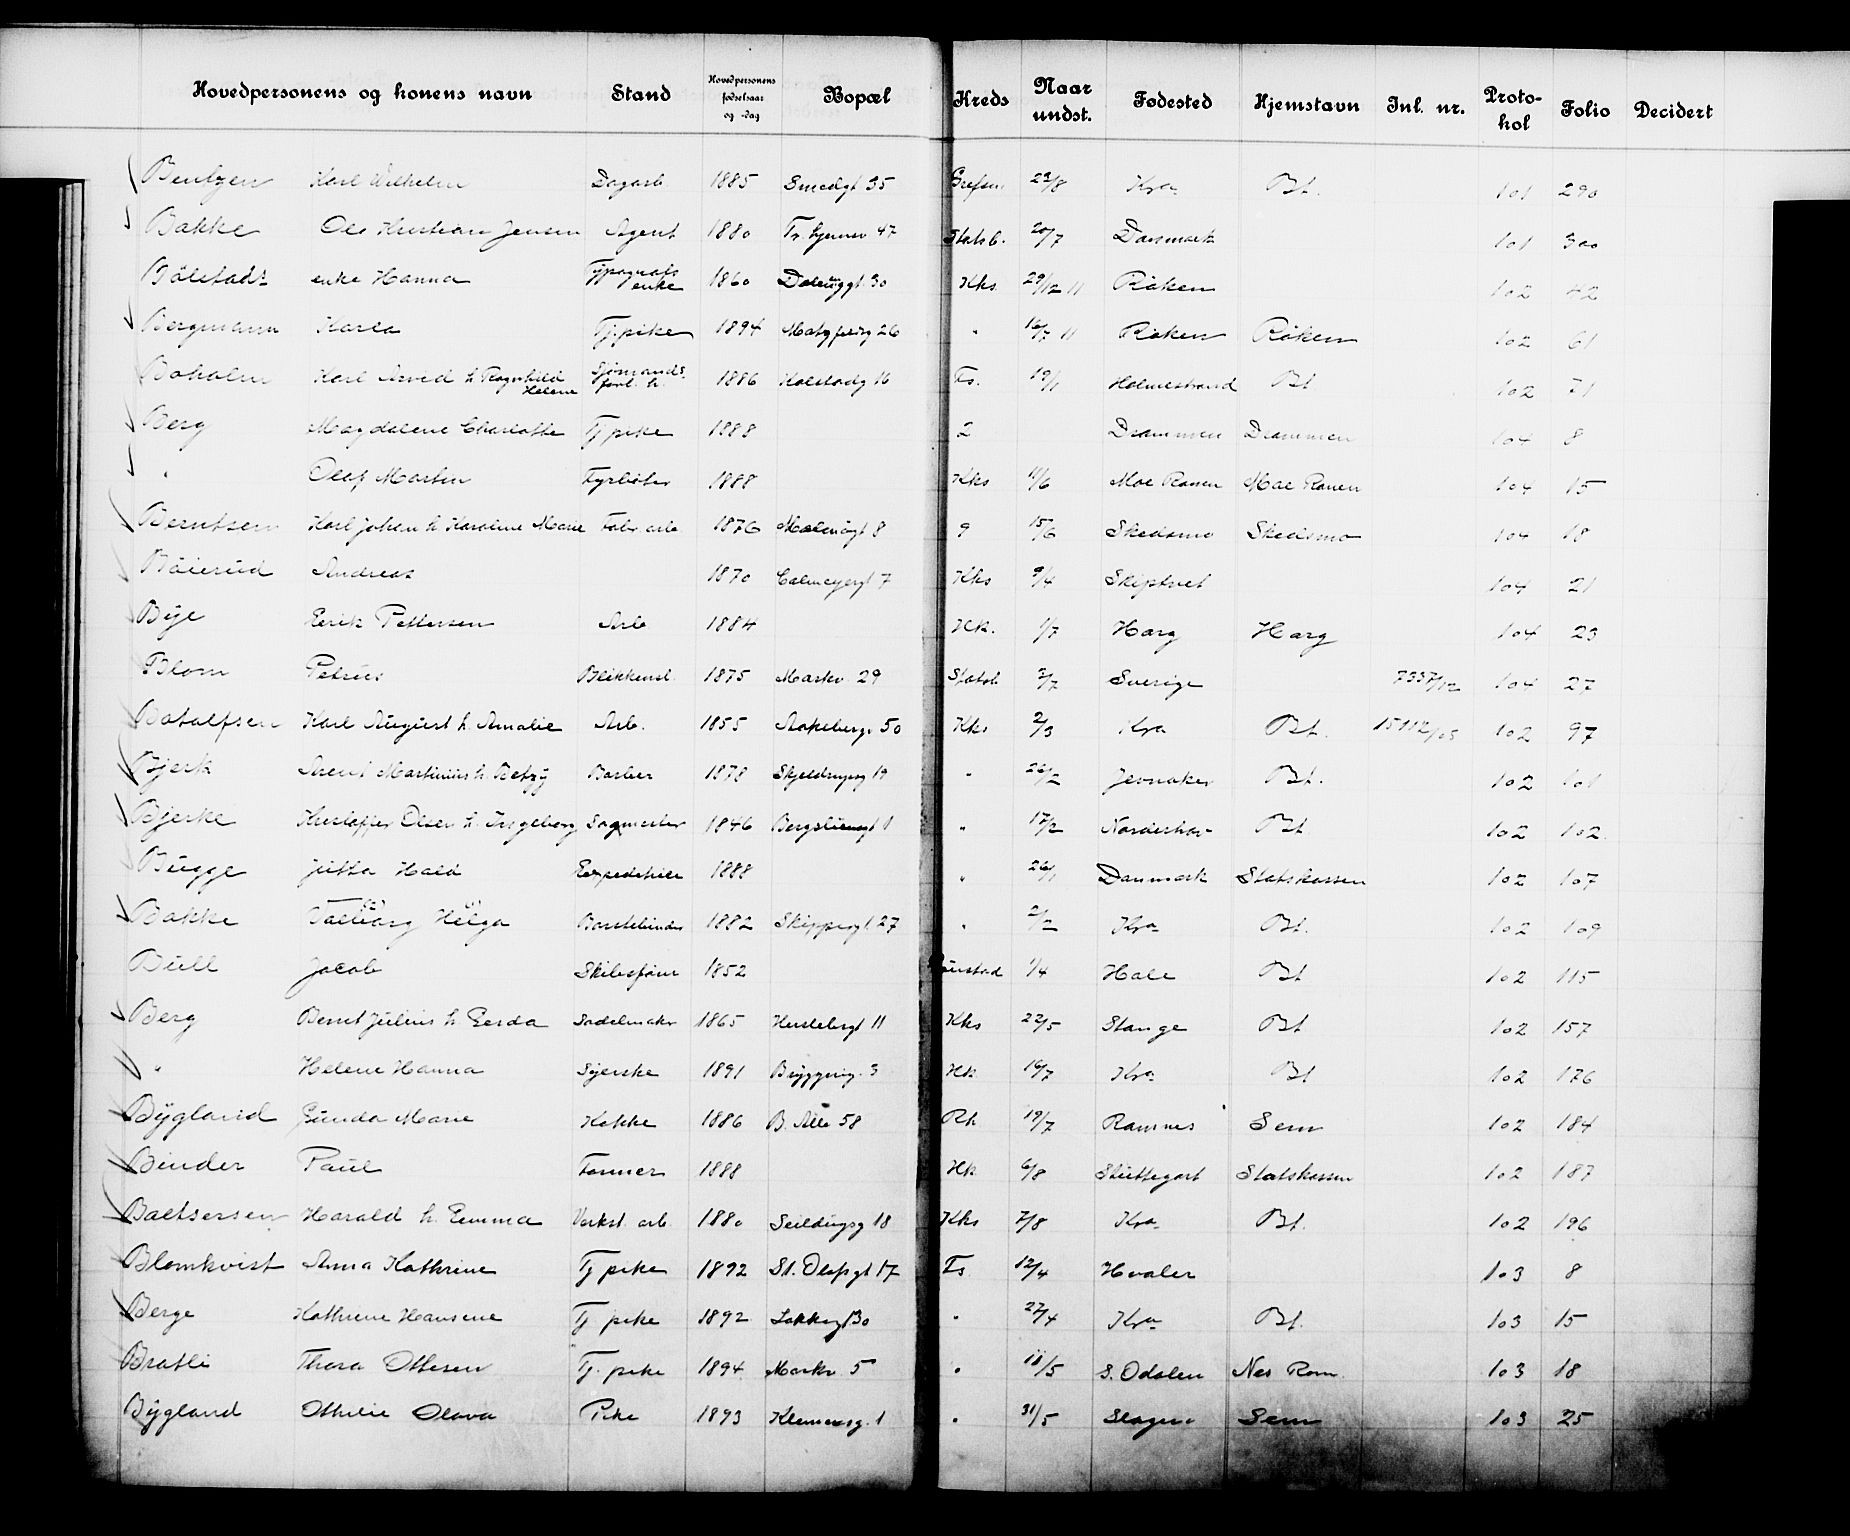 Hovedpersonens og konens navn Stand Hovedpersonens fødselsaar og -dag Bopæl Kreds Naar undst. Fødested Hjemstavn Inl. nr. Proto-kol Folio Decidert
Bentzen Karl Wilhelm Dagarb 1885 Smedgt 35 Grefsen 23/8 Kra Bt. 101 290
Bakke Ole Kristian Jensen Agent 1880 Tr.hjemsv 47 Statsb. 20/7 Danmark 101 300
Bölstads enke Hanna Typografs enke 1860 30 Kks 29/12 11 Röken 102 42
Bergmann Karla Tj.pike 1894 26 " 16/7 11 Röken Röken 102 61
Boholm Karl Arved h Ragnhild Helene Sjømands forl. h. 1886 Kolstadg 16 Fs. 19/1 Holmestrand Bt 102 71
Berg Magdalene Charlotte Tj pike 1888 2 Drammen Drammen 104 8
" Olaf Martin Fyrböter 1888 Kks 11/6 Moe Ranen Moe Ranen 104 15
Berntsen Karl Johan h Karoline Marie Fabr arb 1876 Malerügt 8 9 15/6 Skedsmo Skedsmo 104 18
Böierüd Andreas 1870 Calmeyergt 7 Kks 9/4 Skiptvet 104 21
Bye Eerik Pettersen Arb 1884 Hk. 1/7 Harg Harg 104 23
Blom Petrus Blikkensl. 1875 Markv. 29 Statsb 2/7 Sverige 7337/12 104 27
Botolfsen Karl August h. Amalie Arb. 1855 Aakebergv 50 Kks 2/3 Kra Bt. 15112/05 102 97
Bjerk Arent Martinius h. Betzy Barber 1878 19 " 26/2 Jevnaker Bt. 102 101
Bjerke Kristoffer Olsen h. Ingeborg Sagmester 1846 Bergsliensgt 1 " 17/2 Norderhov Bt 102 102
Bugge Jutta Hald Expeditrice 1888 " 26/1 Danmark Statskassen 102 107
Bakke Valborg (2) Helga (1) Børstebinder 1882 Skippergt. 27 " 2/2 Kra Bt. 102 109
Bull Jacob Skibsfører 1852 1/4 Hole Bt 102 115
Berg Bernt Julius h Gerda Sadelmaker 1865 Herslebsgt 11 Kks 22/5 Stange Bt 102 157
" Helene Hanna Syerske 1891 Bryggerig. 3 Hk 16/7 Kra Bt 102 176
Bÿgland Gunda Marie Kokke 1886 B. Alle 58 Rh 19/7 Ramnes Sem 102 184
Binder Paul Former 1888 Hk 6/8 Stuttegart Statskassen 102 187
Baltsersen Harald h. Emma Verkst. arb. 1880 Seildugsg 18 Kks 7/8 Kra Bt. 102 196
Blomkvist Anna Kathrine Tj pike 1892 St. Olafsgt 17 Fs 12/4 Hvaler 103 8
Berge Kathrine Hansine Tj pike 1892 " 27/4 Kra Bt. 103 15
Bratli Thora Ottesen Tj. pike 1894 Markv 5 " 11/5 S. Odalen Nes Rom. 103 18
Bÿgland Othilie Olava Pike 1893 Klemetsg. 1 " 31/5 Slagen Sem 103 25